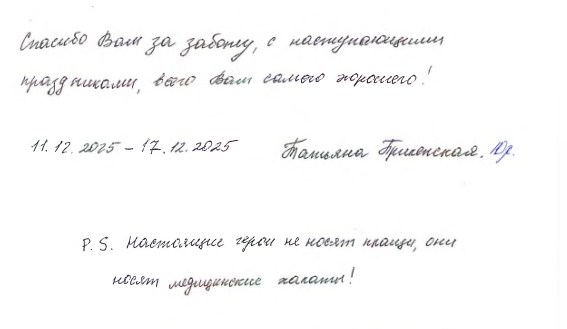 Спасибо Вам за заботу, с наступающими
праздниками, всего Вам самого хорошего!
11.12.2025 – 17.12.2025 Татьяна
P.S. Настоящие герои не носят плащи, они
носят медицинские халаты!